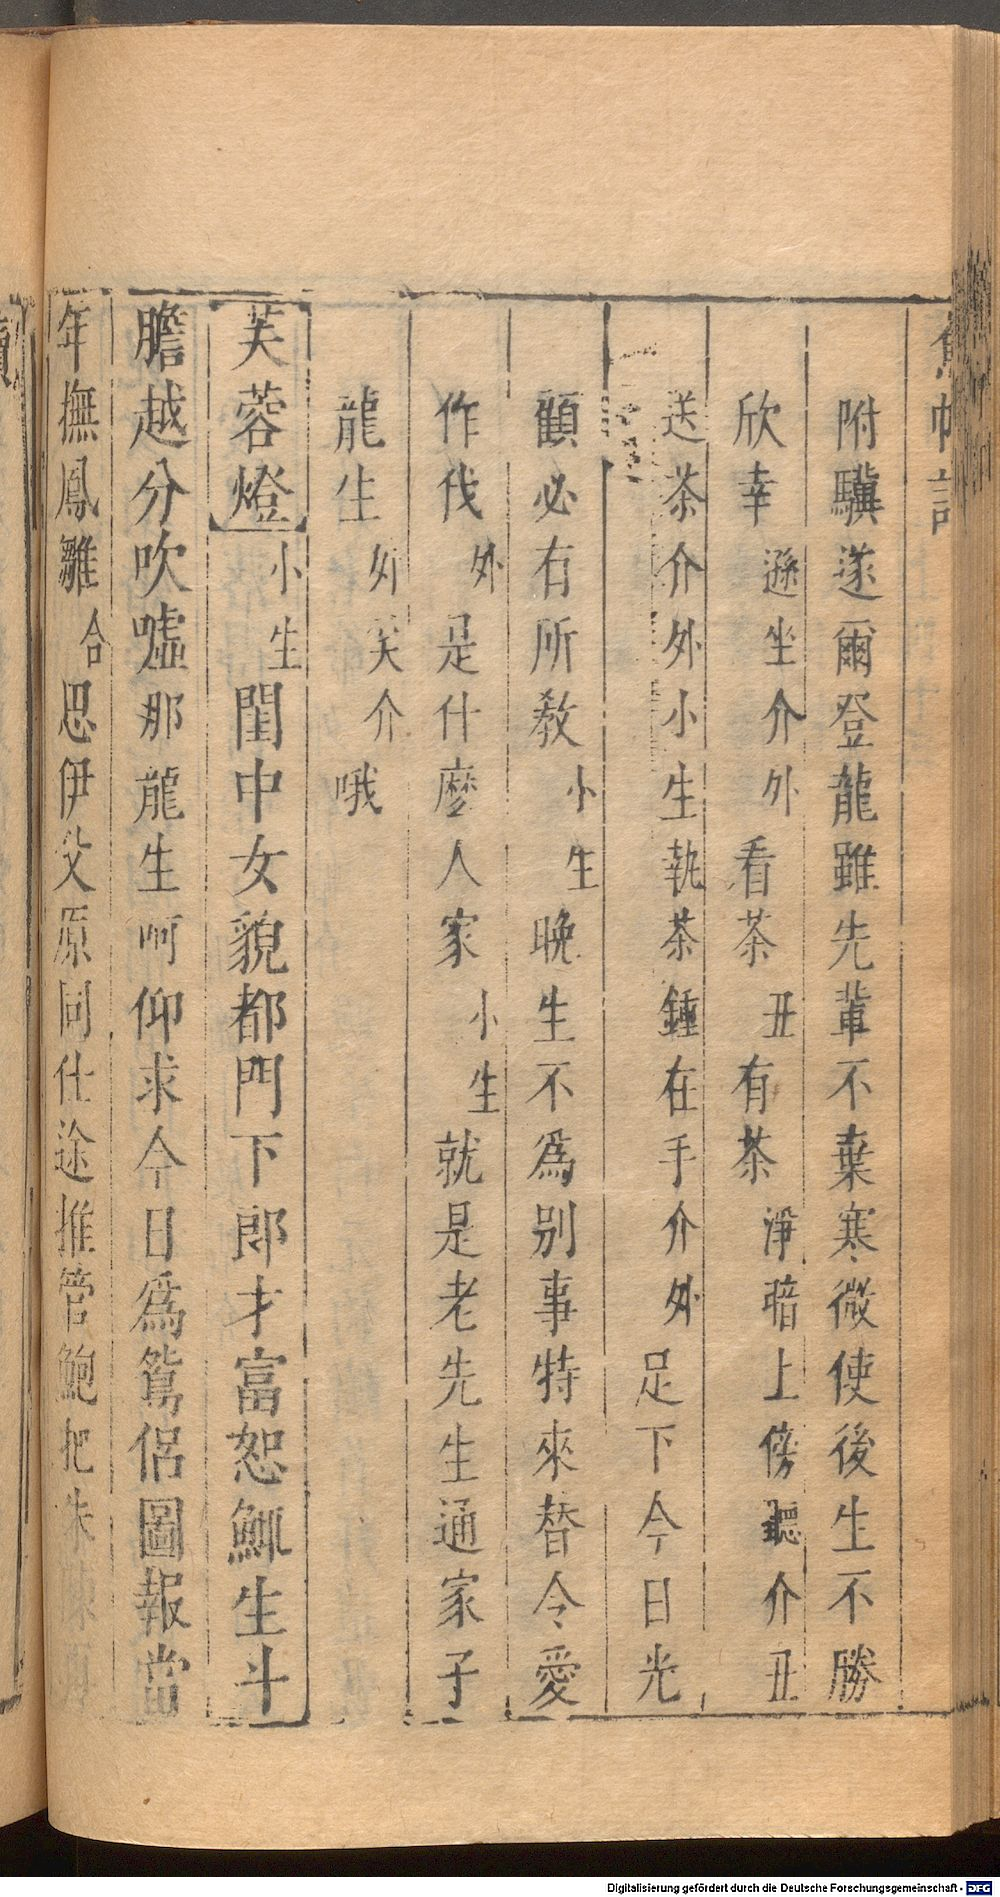 附驥遂爾登龍雖先輩不棄寒微使後生不勝
欣幸遜坐介外看茶丑有茶淨暗上傍聽介丑
送茶介外小生執茶鍾在手介外足下今日光
顧必有所敎小生晚生不爲别事特來替令愛
作伐外是什麼人家小生就是老先生通家子
龍生外笑介哦
芙蓉燈小生閨中女貌都門下郎才富恕鯫生斗
膽越分吹噓那龍生呵仰求今日爲鴛侶圖報當
年撫鳳雛合思伊父原同仕途推管鮑把朱陳
Digitalisierung gefördert durch die Deutsche Forschungsgemeinschaft - DFG